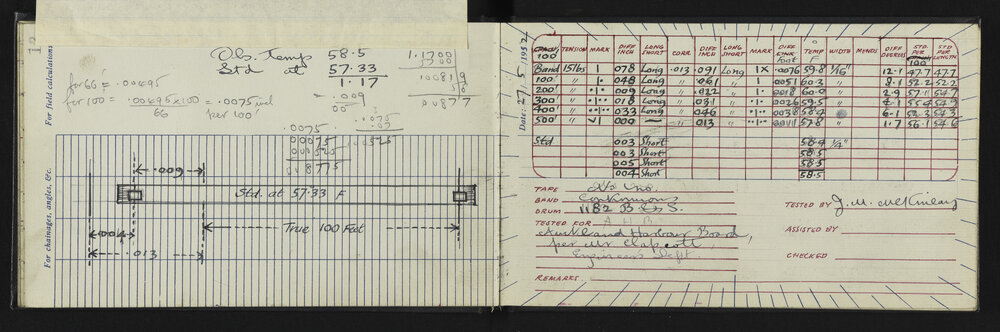 For field calculations
For chainages, angles, &c.
Obs. Temp 58.5
Std at 57.33
1.17
.009
1.1700
for 66' = .00495
for 100 = .00495x100 = .0075 inch
66 per 100'
.0075
.009
Std. at 57.33 F
.004
True 100 Feet
.013
Date: 27.5.1952
TENSION MARK DIFF INCH LONG SHORT CORR DIFF INCH LONG SHORT MARK DIFF LINK FOOT TEMP F WIDTH MENDS DIFF DEGREES STD PER 100 STD PER LENGTH
Band 15 lbs 1 .078 Long .013 .091 Long 1X .0076 59.8 1/16" 12.1 47.7 47.7
100' " .048 Long " .061 " .0051 60.3 " 8.1 52.2 52.2
200' " .009 Long " .022 " .0018 60.0 " 2.9 57.1 54.7
300' " .018 Long " .031 " .0026 59.5 " 4.1 55.4 54.9
400' " .033 Long " .046 " .0038 58.4 " 6.1 52.3 54.3
500' " .000 " .013 " .0011 57.8 " 1.7 56.1 54.6
Std .003 Short 58.4 1/4"
.003 Short 58.5
.005 Short 58.5
.004 Short 58.5
TAPE No. no.
BAND Continuous
DRUM 1182 B & S.
TESTED FOR A H B
Auckland Harbour Board,
per Mr Clapcott,
Engineers Dept
REMARKS
TESTED BY J. M. McKinlay
ASSISTED BY
CHECKED